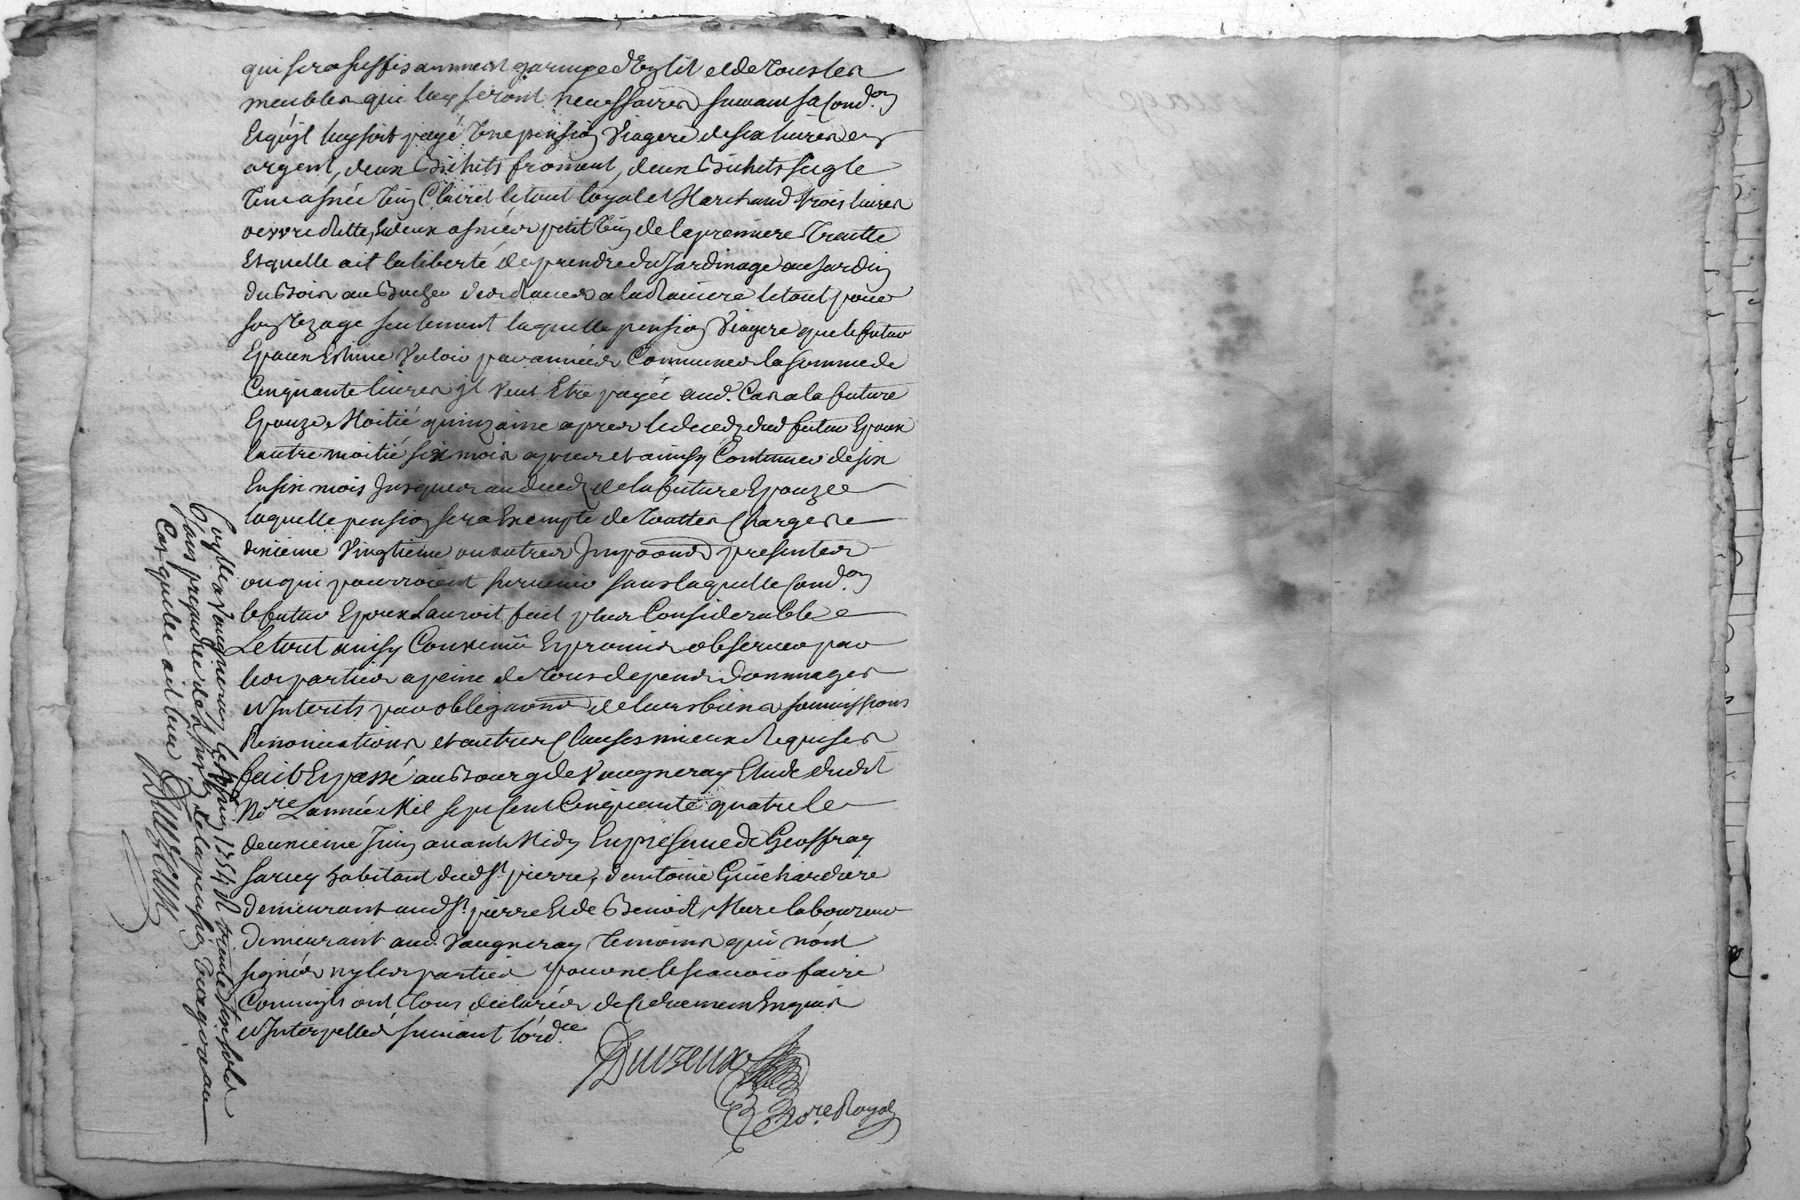 qui sera suffisamment garnye d'un lit et de tous les
meubles qui luy seront necessaires suivant sa cond.on
Et qu'jl luy soit payé Une pension Viagere de six livres en
argent, deux Bichets froment, deux Bichets seigle
Une asnée Vin Clairet le tout loyal et Marchand trois livres
deux asnées petit Vin de la premiere Trautte
Et quelle ait la liberté de prendre du Jardinage au Jardin
du Bois au Bucher des Raves a la Raviere le tout pour
son Uzage seulement laquelle pension Viagere que le futur
Epoux Estime Valoir par années Communes la somme de
Cinquante livres jl Veut Etre payée aud. Cas a la future
Epouze Moitié quinzaine apres le deced dud futur Epoux
lautre moitié six mois apres et ainsy Continuer de six
En six mois Jusques au deced de la future Epouze
laquelle pension sera Exempte de Touttes Charges de
dixieme Vingtieme ou autres Impoõns presentes
ou qui pourroient survenir sans laquelle Cond.on
le futur Epoux Lauroit fait plus Considerable
Le tout ainsy Convenu Et promis observer par
les parties a peine de Tous depens dommages
et Interets par obligaõns de leurs biens soumissions
Renonciations et autres Clauses mieux Requises
fait Et passé au Bourg de Vaugneray Etude dudit
No.re Lannée Mil sept Cent Cinquante quatre le
deuxieme Juin avant Midy En présence de Geoffray
Sarcey habitant dud St pierre, d'antoine Guichard
demeurant aud St. pierre Et de Benoit Mure laboureur
demeurant aud. Vaugneray Temoins qui n'ont
signés ny les parties pour ne le scavoir faire
Comm'jls ont Tous déclarés de Ce duement Enquis
et Interpellés suivant l'ord.ce
Duizeux
No.re Royal
Con.lé a Vaugneray Le Juin 1754 R. trente six sols
sans prejudice de de la pension Viagere au
Cas quelle ait lieu Duizeux